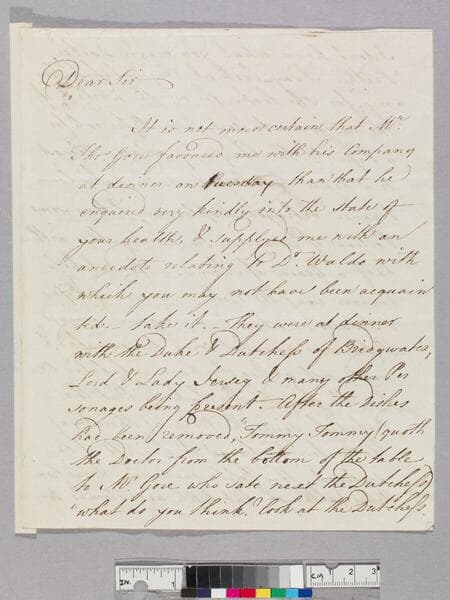 Dear Sir
It is not more certain that Mr.
Thos. Gore favoured me with his Company
at dinner on tuesday than that he
enquired very kindly into the State of
your health, & supplyed me with an
anecdote relating to Dr. Waldo with
which you may not have been acquain
ted. – take it. – They were at dinner
with the Duke & Dutchess of Bridgwater,
Lord & Lady Jersey & many other Per
sonages being present. After the Dishes
had been removed, "Tommy Tommy (quoth
the Doctor from the bottom of the table
to Mr Gore who sate next the Dutchess)
"what do you think," look at the Dutchess.
IN. 1
CM 1 2 3